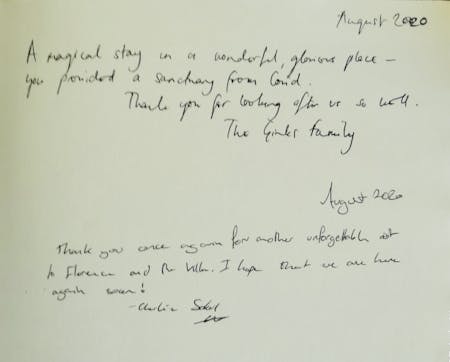 August 2020
A magical stay in a wonderful, glorious place –
you provided a sanctuary from Covid.
Thank you for looking after us so well.
The Family
August 2020
Thank you once again for another unforgettable visit
to Florence and the Villa. I hope that we are here
again soon!